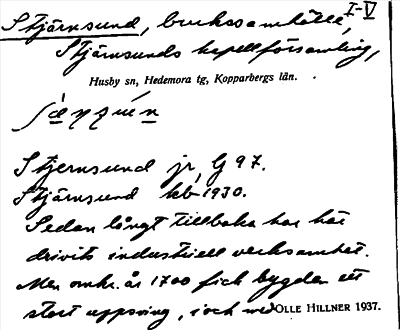 Stjärnsund, brukssamhälle, I-V
Stjärnsunds kapellförsamling,
Husby sn, Hedemora tg, Kopparbergs län.
Stjernsund jr, G 97.
Stjärnsund kb 1930.
Sedan långt tillbaka har här
drivits industriell verksamhet.
Men omkr. år 1700 fick bygden ett
stort uppsving, i och med OLLE HILLNER 1937.